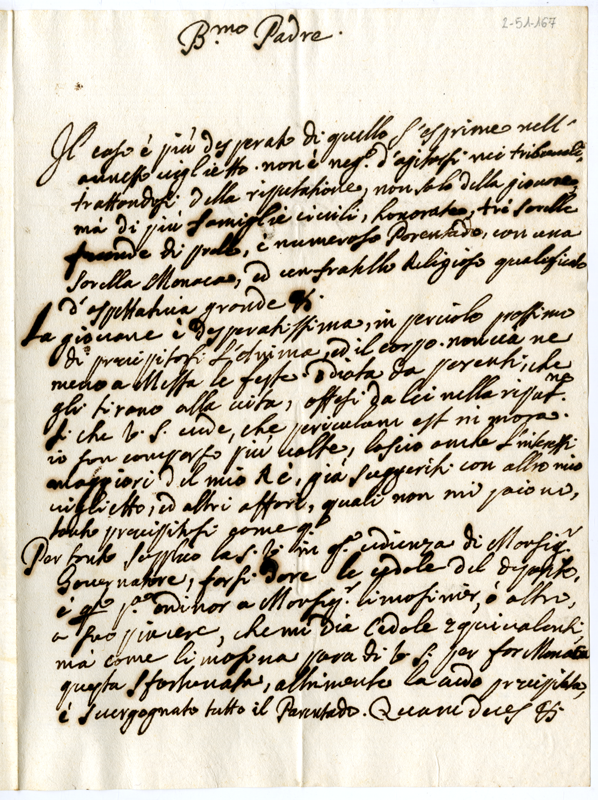 2-51-167
B.mo Padre.
Il caso è più desperato di quello s'esprime nell'
annesso viglietto. non è neg.o d'agitarsi nei tribunali,
trattandosi della riputatione, non solo della giovane,
mà di più famiglie civili, honorate, tré sorelle
di , è numeroso Parentado, con una
sorella Monaca, ed un fratello Religioso qualificato
d'aspettativa grande
La giovane è desperatissima, in pericolo prossimo
di precipitarsi l'Anima, ed il corpo. non và ne
meno a Messa le feste. Odiata da parenti, che
gli tirano alla vita, offesi da lei nella riput.ne
si che V. S. vede, che periculum est in mora.
io son comparso più volte, lascio anche l'interessi
maggiori del mio Rè, già suggeriti con altro mio
viglietto, ed altri affari, quali non mi paiono,
tanto precipitosi come q.o
Per tanto supplico la S. V. in q.a udienza di Monsig.r
Governatore, forsi dare le cedole del
è ordinar a Monsig.r limosinier, è altro,
a suo piacere, che mi dia Cedole equivalenti
mà come limosina para di V. S. per far Monaca
questa sfortunata, altrimente la vedo precipitata,
è svergognato tutto il Parentado. Quam deus